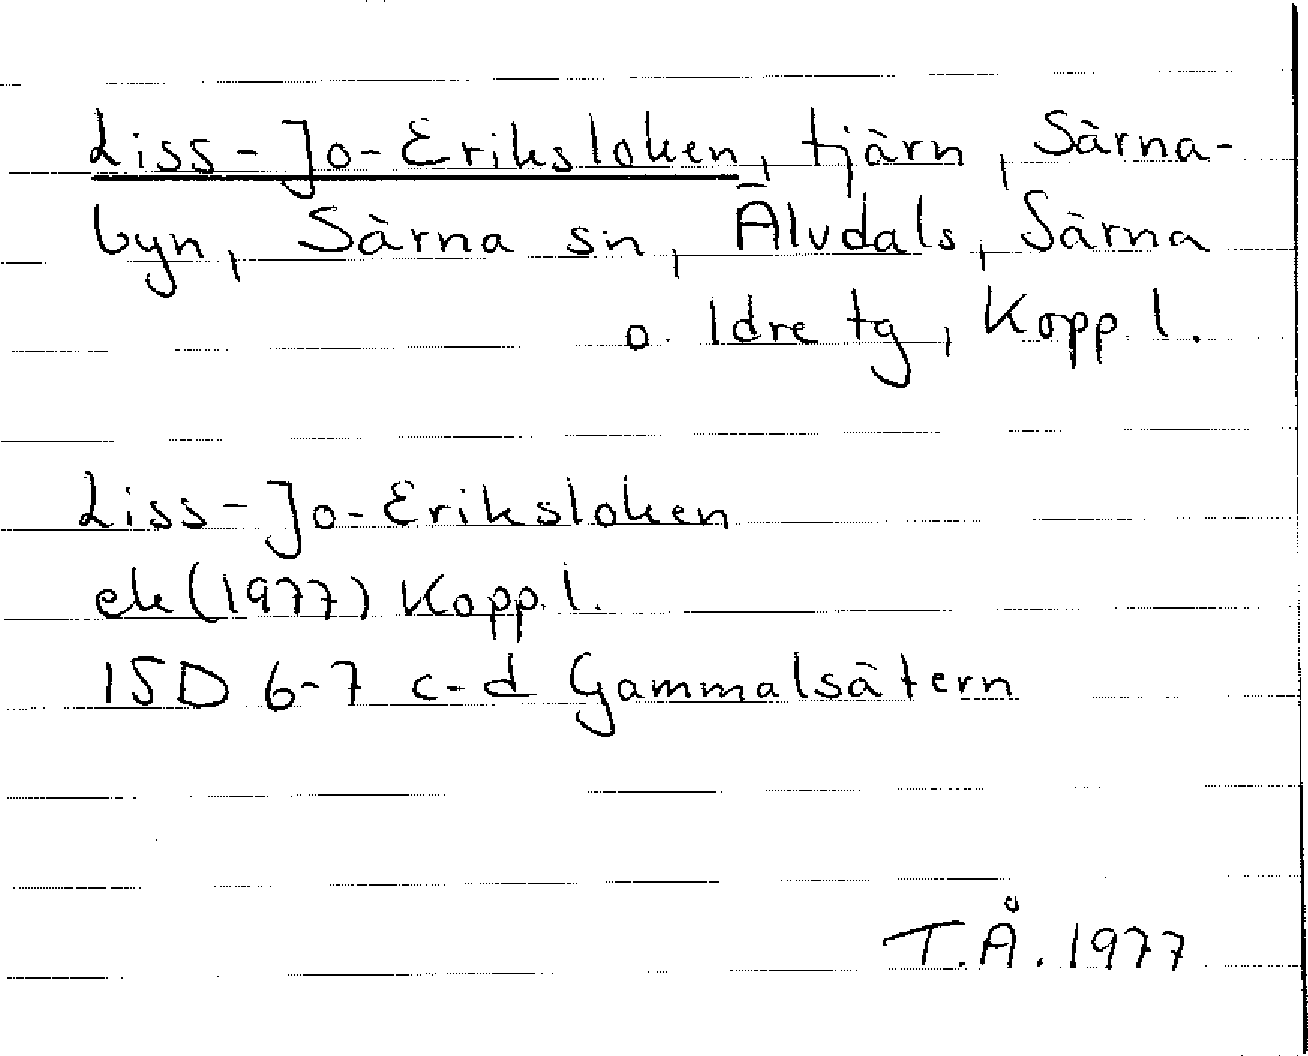 Liss-Jo-Eriksloken, tjärn, Särna-
byn, Särna sn, Älvdals, Särna
o. Idre tg, Kopp. l.
Liss-Jo-Eriksloken
ek (1977) Kopp. l.
15D 6-7 c-d Gammalsätern
T.Å. 1977